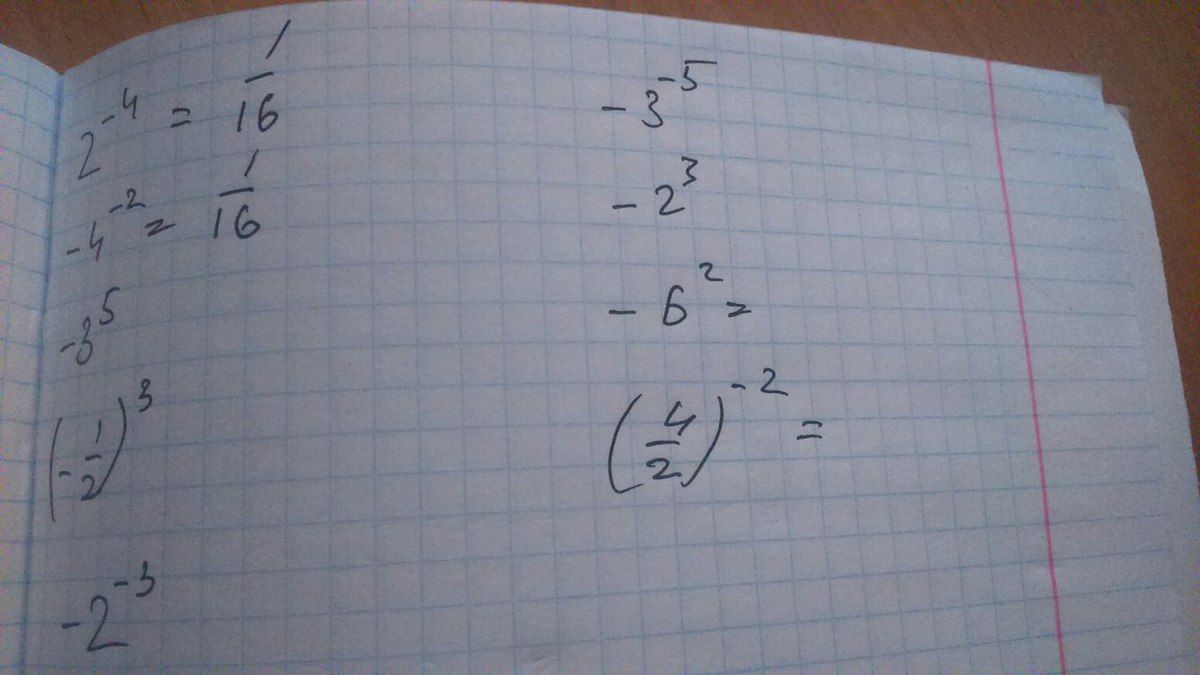 2⁻⁴ = 1/16
-4⁻² = 1/16
-3⁵
(-1/2)³
-2⁻³
-3⁻⁵
-2³
-6² =
(4/2)⁻² =